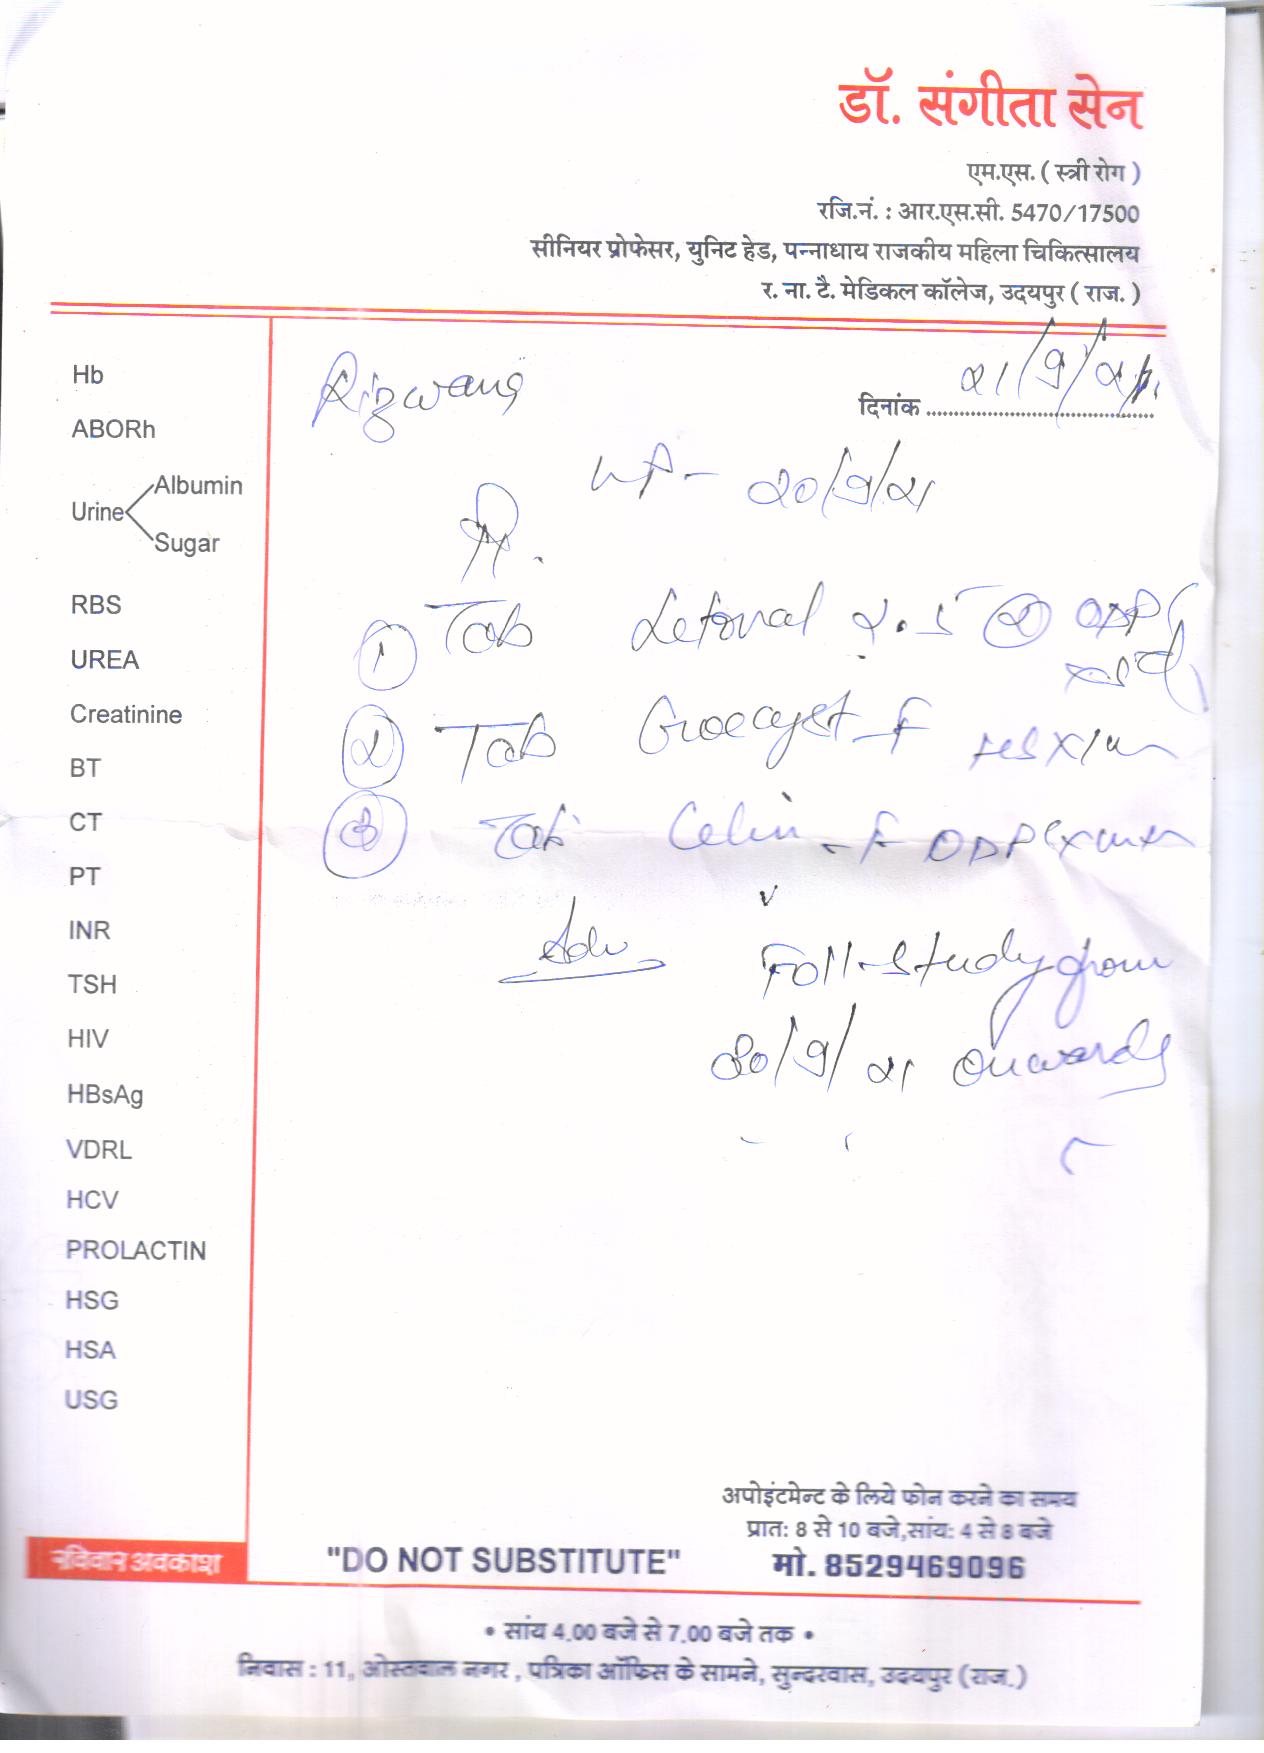 डॉ. संगीता सेन
एम.एस. ( स्त्री रोग )
रजि.नं. : आर.एस.सी. 5470/17500
सीनियर प्रोफेसर, युनिट हेड, पन्नाधाय राजकीय महिला चिकित्सालय
र. ना. टै. मेडिकल कॉलेज, उदयपुर ( राज. )
Hb
ABORh
Urine
Albumin
Sugar
RBS
UREA
Creatinine
BT
CT
PT
INR
TSH
HIV
HBsAg
VDRL
HCV
PROLACTIN
HSG
HSA
USG
रविवार अवकाश
दिनांक 21/9/21
20/9/21
1 Tab Letoval 2.5 2 ODPC
2 Tab -F
3 Tab Celin - F ODPC
Adv Foll-study from
30/9/21 onwards
अपोइंटमेन्ट के लिये फोन करने का समय
प्रात: 8 से 10 बजे,सांय: 4 से 8 बजे
"DO NOT SUBSTITUTE" मो. 8529469096
• सांय 4.00 बजे से 7.00 बजे तक •
निवास : 11, ओस्तवाल नगर , पत्रिका ऑफिस के सामने, सुन्दरवास, उदयपुर (राज.)